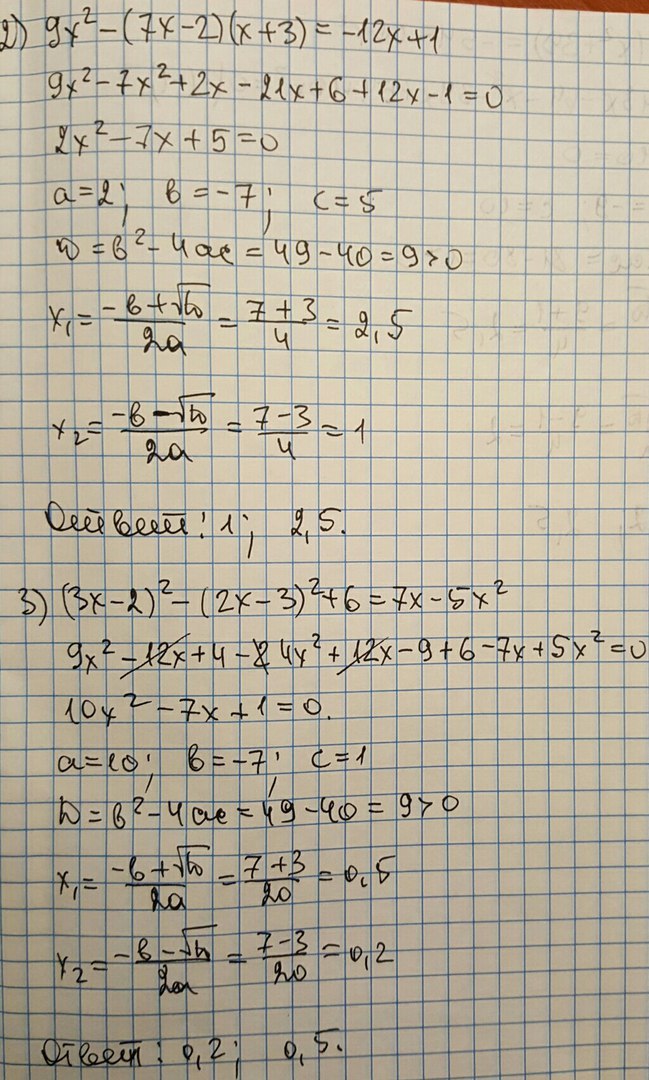 2) 9x² - (7x - 2)(x + 3) = -12x + 1
9x² - 7x² + 2x - 21x + 6 + 12x - 1 = 0
2x² - 7x + 5 = 0
a = 2; в = -7; c = 5
D = в² - 4ac = 49 - 40 = 9 > 0
x₁ = (-в + √D)/2a = (7 + 3)/4 = 2,5
x₂ = (-в - √D)/2a = (7 - 3)/4 = 1
Ответ: 1; 2,5.
3) (3x - 2)² - (2x - 3)² + 6 = 7x - 5x²
9x² - 12x + 4 - 4x² + 12x - 9 + 6 - 7x + 5x² = 0
10x² - 7x + 1 = 0.
a = 10; в = -7; c = 1
D = в² - 4ac = 49 - 40 = 9 > 0
x₁ = (-в + √D)/2a = (7 + 3)/20 = 0,5
x₂ = (-в - √D)/2a = (7 - 3)/20 = 0,2
Ответ: 0,2; 0,5.